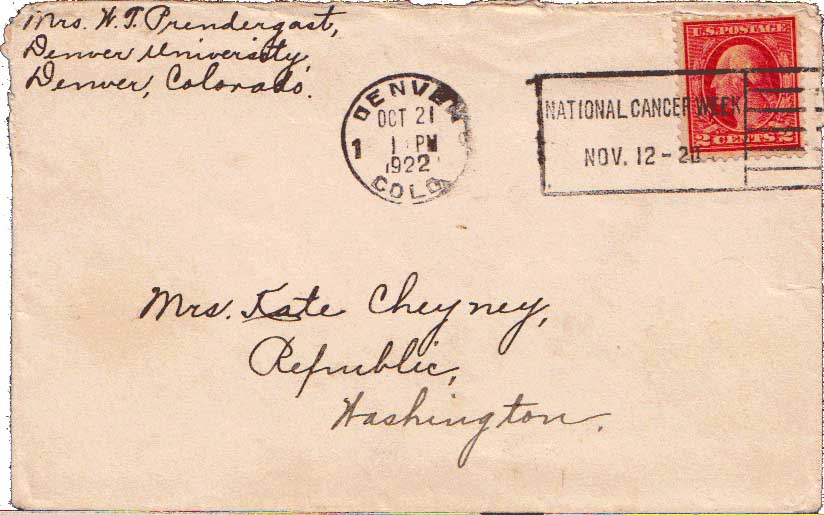 Mrs. W. T. Prendergast,
Denver University,
Denver, Colorado.
DENVER
OCT 21
1 1 PM
1922
COLO
U.S. POSTAGE
2 CENTS 2
NATIONAL CANCER WEEK
NOV. 12-20
Mrs. Kate Cheyney,
Republic,
Washington.